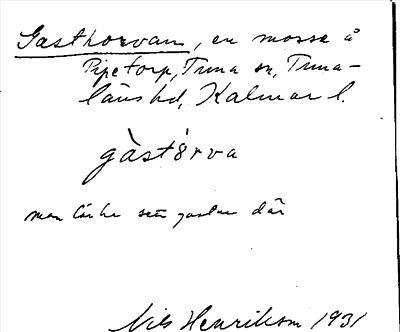 Gasthorvan, en mosse å
Pipetorp, Tuna sn, Tuna-
läns hd, Kalmar l.
gàst8rva
man lär ha sett gastar där
Nils Henrikson 1931